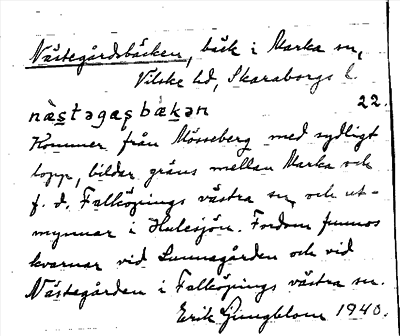 Nästegårdsbäcken, bäck i Marka sn,
Vilske hd, Skaraborgs l.
22.
næ̀stəgaʂbækən
Kommer från Mösseberg med sydligt
lopp, bildar gräns mellan Marka och
f. d. Falköpings västra sn, och ut-
mynnar i Hulesjön. Fordom funnos
kvarnar vid Lunnagården och vid
Nästegården i Falköpings västra sn.
Erik Ljungblom 1940.